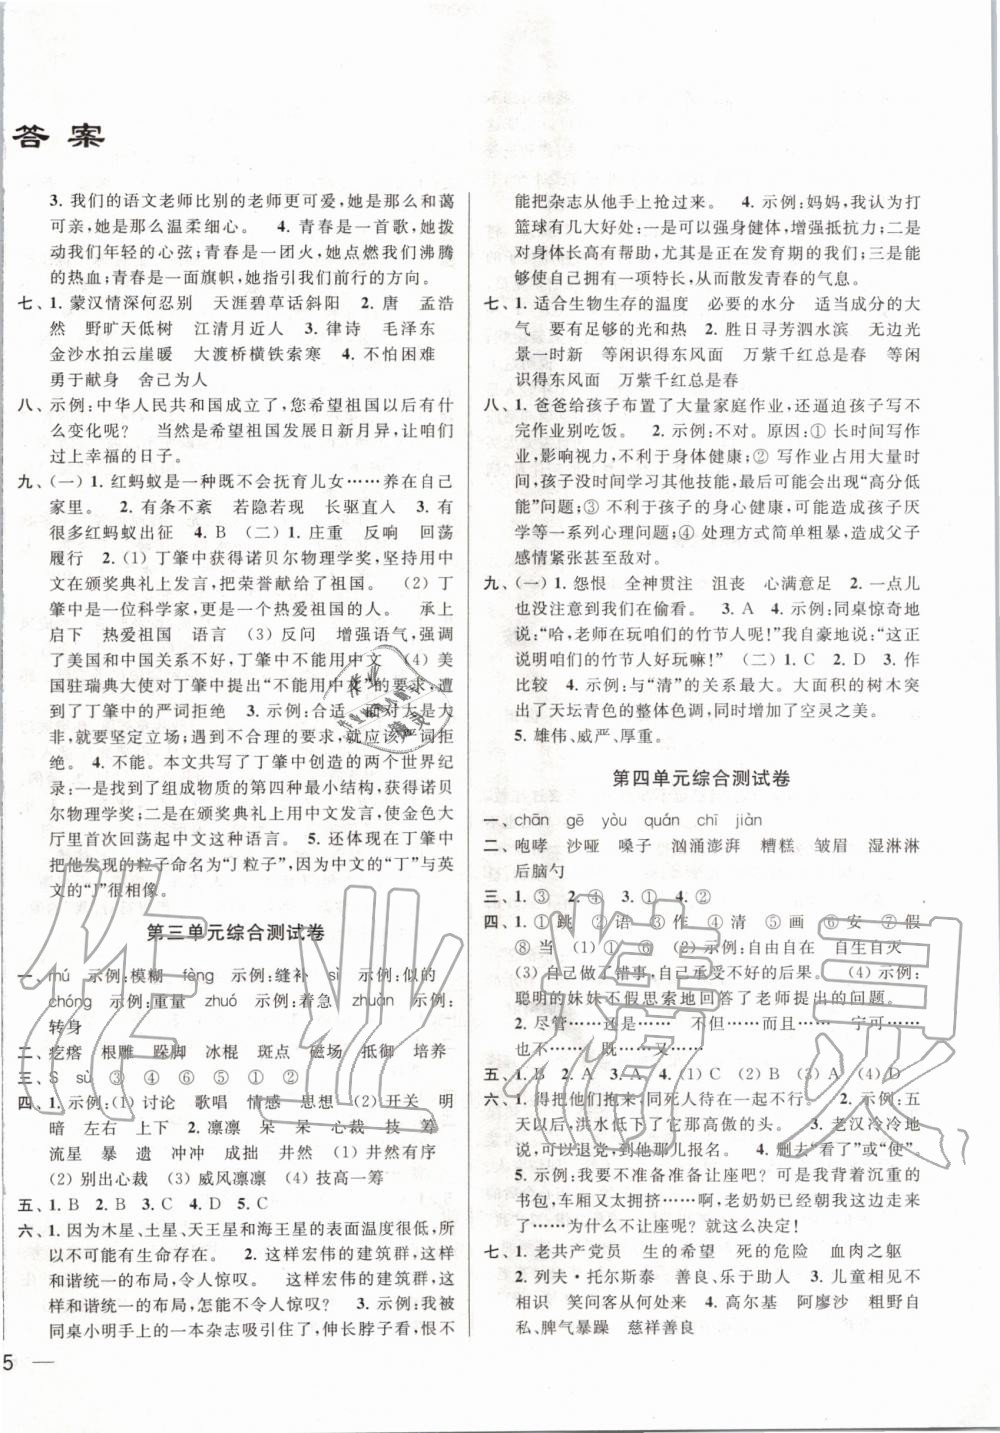 答案
3. 我们的语文老师比别的老师更可爱,她是那么和蔼
可亲,她是那么温柔细心。 4. 青春是一首歌,她拨
动我们年轻的心弦;青春是一团火,她点燃我们沸腾
的热血;青春是一面旗帜,她指引我们前行的方向。
七、1. 蒙汉情深何忍别 天涯碧草话斜阳 2. 唐 孟浩
然 野旷天低树 江清月近人 3. 律诗 毛泽东
金沙水拍云崖暖 大渡桥横铁索寒 4. 不怕困难
勇于献身 舍己为人
八、示例:中华人民共和国成立了,您希望祖国以后有什
么变化呢? 当然是希望祖国发展日新月异,让咱们
过上幸福的日子。
九、(一) 1. 红蚂蚁是一种既不会抚育儿女……养在自己
家里。 2. 有条不紊 若隐若现 长驱直人 3. 有
很多红蚂蚁出征 4. B (二) 1. 庄重 回荡
履行 2. (1) 丁肇中获得诺贝尔物理学奖,坚持用中
文在颁奖典礼上发言,把荣誉献给了祖国。 (2) 丁
肇中是一位科学家,更是一个热爱祖国的人。 承上
启下 热爱祖国 语言 (3) 反问 增强语气,强调了
美国和中国关系不好,丁肇中不能用中文 (4) 美
国驻瑞典大使对丁肇中提出“不能用中文”的要求,遭
到了丁肇中的严词拒绝 3. 示例:合适 面对大是大
非,就要坚定立场;遇到不合理要求,就应该严词拒
绝。 4. 不能。本文共写了丁肇中创造的两个世界纪
录:一是找到了组成物质的第四种最小结构,获得诺贝
尔物理学奖;二是在颁奖典礼上使用中文,使金色大
厅里首次回荡起中文这种语言。 5. 还体现在丁肇中
把他发现的粒子命名为“J粒子”,因为中文的“丁”与英
文的“J”很相像。
第三单元综合测试卷
一、mú 示例:模糊 fèng 示例:缝补 sì 示例:似的
chóng 示例:重量 zhuó 示例:着急 zhuǎn 示例:
转身
二、疙瘩 根雕 跺脚 冰棍 斑点 磁场 抵御 培养
三、S sù ③ ④ ⑥ ⑤ ① ②
四、1. 示例:(1) 讨论 歌唱 情感 思想 (2) 开关 明
暗 左右 上下 2. 凛凛 呆 呆 心裁 技 筹
流星 暴 遗 冲冲 成拙 井然 (1) 井然有序
(2) 别出心裁 (3) 威风凛凛 (4) 技高一筹
五、1. B 2. B 3. C 4. D 5. C
六、1. 因为木星、土星、天王星和海王星的表面温度很低,所
以不可能有生命存在。 2. 这样宏伟的建筑群,这样
和谐统一的布局,令人惊叹。 这样宏伟的建筑群,这
样和谐统一的布局,怎能不令人惊叹? 3. 示例:我被
同桌小明手上的一本杂志吸引住了,伸长脖子看,恨不
能把杂志从他手上抢过来。 4. 示例:妈妈,我认为打
篮球有几大好处:一是可以强身健体,增强抵抗力;二是
对身体长高有帮助,尤其是正在发育期的我们;三是能
够使自己拥有一项特长,从而散发青春的气息。
七、1. 适合生物生存的温度 必要的水分 适当成分的大
气 要有足够的光和热 2. 胜日寻芳泗水滨 无边光
景一时新 等闲识得东风面 万紫千红总是春 等闲
识得东风面 万紫千红总是春
八、1. 爸爸给孩子布置了大量家庭作业,还逼迫孩子写不
完作业别吃饭。 2. 示例:不对。原因:① 长时间写作
业,影响视力,不利于身体健康;② 写作业占用大量时
间,孩子没时间学习其他技能,最后可能会出现“高分低
能”问题;③ 不利于孩子的身心健康,可能造成孩子厌
学等一系列心理问题;④ 处理方式简单粗暴,造成父子
感情紧张甚至敌对。
九、(一) 1. 怨恨 全神贯注 沮丧 心满意足 2. 一点儿
也没注意到我们在偷看。 3. A 4. 示例:同桌惊奇地
说:“哈,老师在玩咱们的竹节人呢!”我自豪地说:“这正
说明咱们的竹节人好玩嘛!” (二) 1. C 2. D 3. 作
比较 4. 示例:与“清”的关系最大。大面积的树木突
出了天坛青色的整体色调,同时增加了空灵之美。
5. 雄伟、威严、厚重。
第四单元综合测试卷
一、chān gē yòu quán chǐ jiàn
二、咆哮 沙哑 嗓子 汹涌澎湃 糟糕 皱眉 湿淋淋
后脑勺
三、1. ③ 2. ④ 3. ① 4. ②
四、1. ① 跳 ② 语 ③ 作 ④ 清 ⑤ 画 ⑥ 安 ⑦ 假
⑧ 当 (1) ① ⑥ (2) 示例:自由自在 自生自灭
(3) 自己做了错事,自己承受不好的后果。 (4) 示例:
聪明的妹妹不假思索地回答了老师提出的问题。
2. 尽管……还是…… 不但……而且…… 宁可……也
也不…… 既……又……
五、1. B 2. A 3. A 4. (1) C (2) B (3) A (4) D
六、1. 得把他们抱来,同死人待在一起不行。 2. 示例:五
天以后,洪水低下了它的头。 3. 老汉冷冷地
说,可以退党,到他那儿报名。 4. 删去“看了”或“使”。
5. 示例:我要不准备准备让座吧? 可是我背着沉重的
书包,车厢里又太拥挤……啊,老奶奶已经朝我这边走
了……为什么不让座呢? 对,就这么决定!
七、1. 老共产党员 生的希望 死的危险 血肉之躯
2. 列夫·托尔斯泰 善良、乐于助人 3. 儿童相见不
相识 笑问客从何处来 4. 高尔基 阿廖沙 粗野自
私、脾气暴躁 慈祥善良
5 —
作业精灵